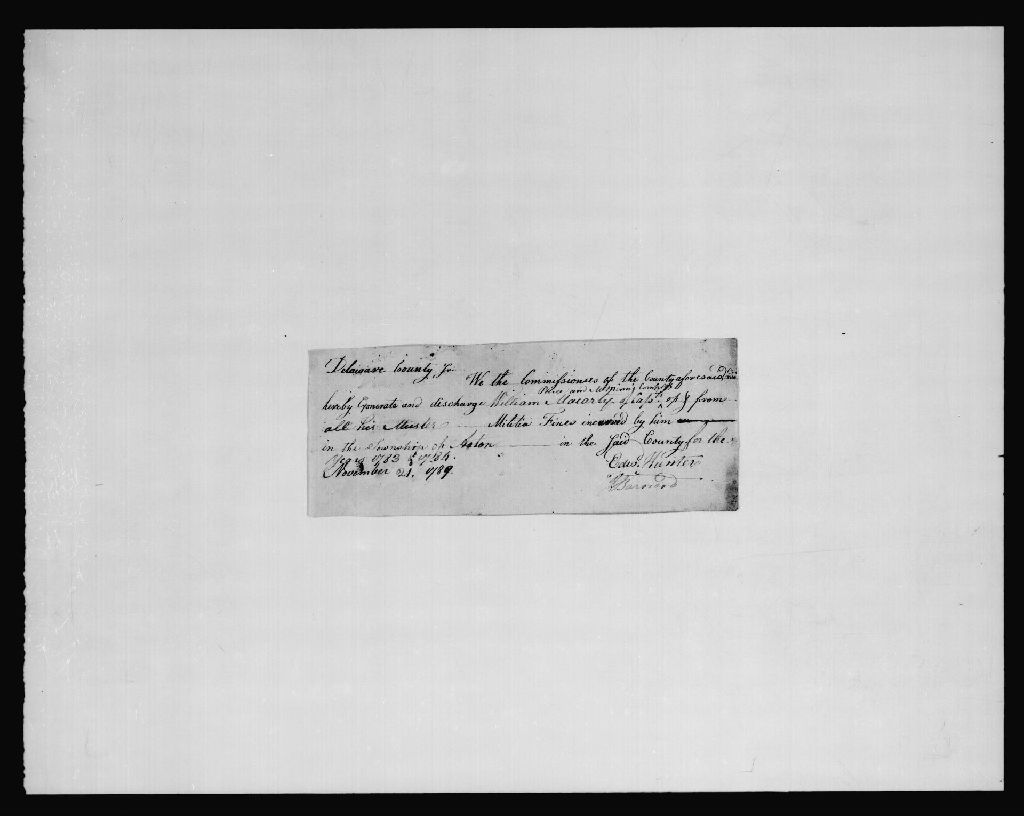 Delaware County, Ss
We the Commissioners of the County aforesaid do
hereby Exonerate and discharge William
all his Muster Militia Fines incurred by him
in the Township of Aston in the Said County for the
Years 1783 & 1784.
November 21. 1789
Edwd. Hunter